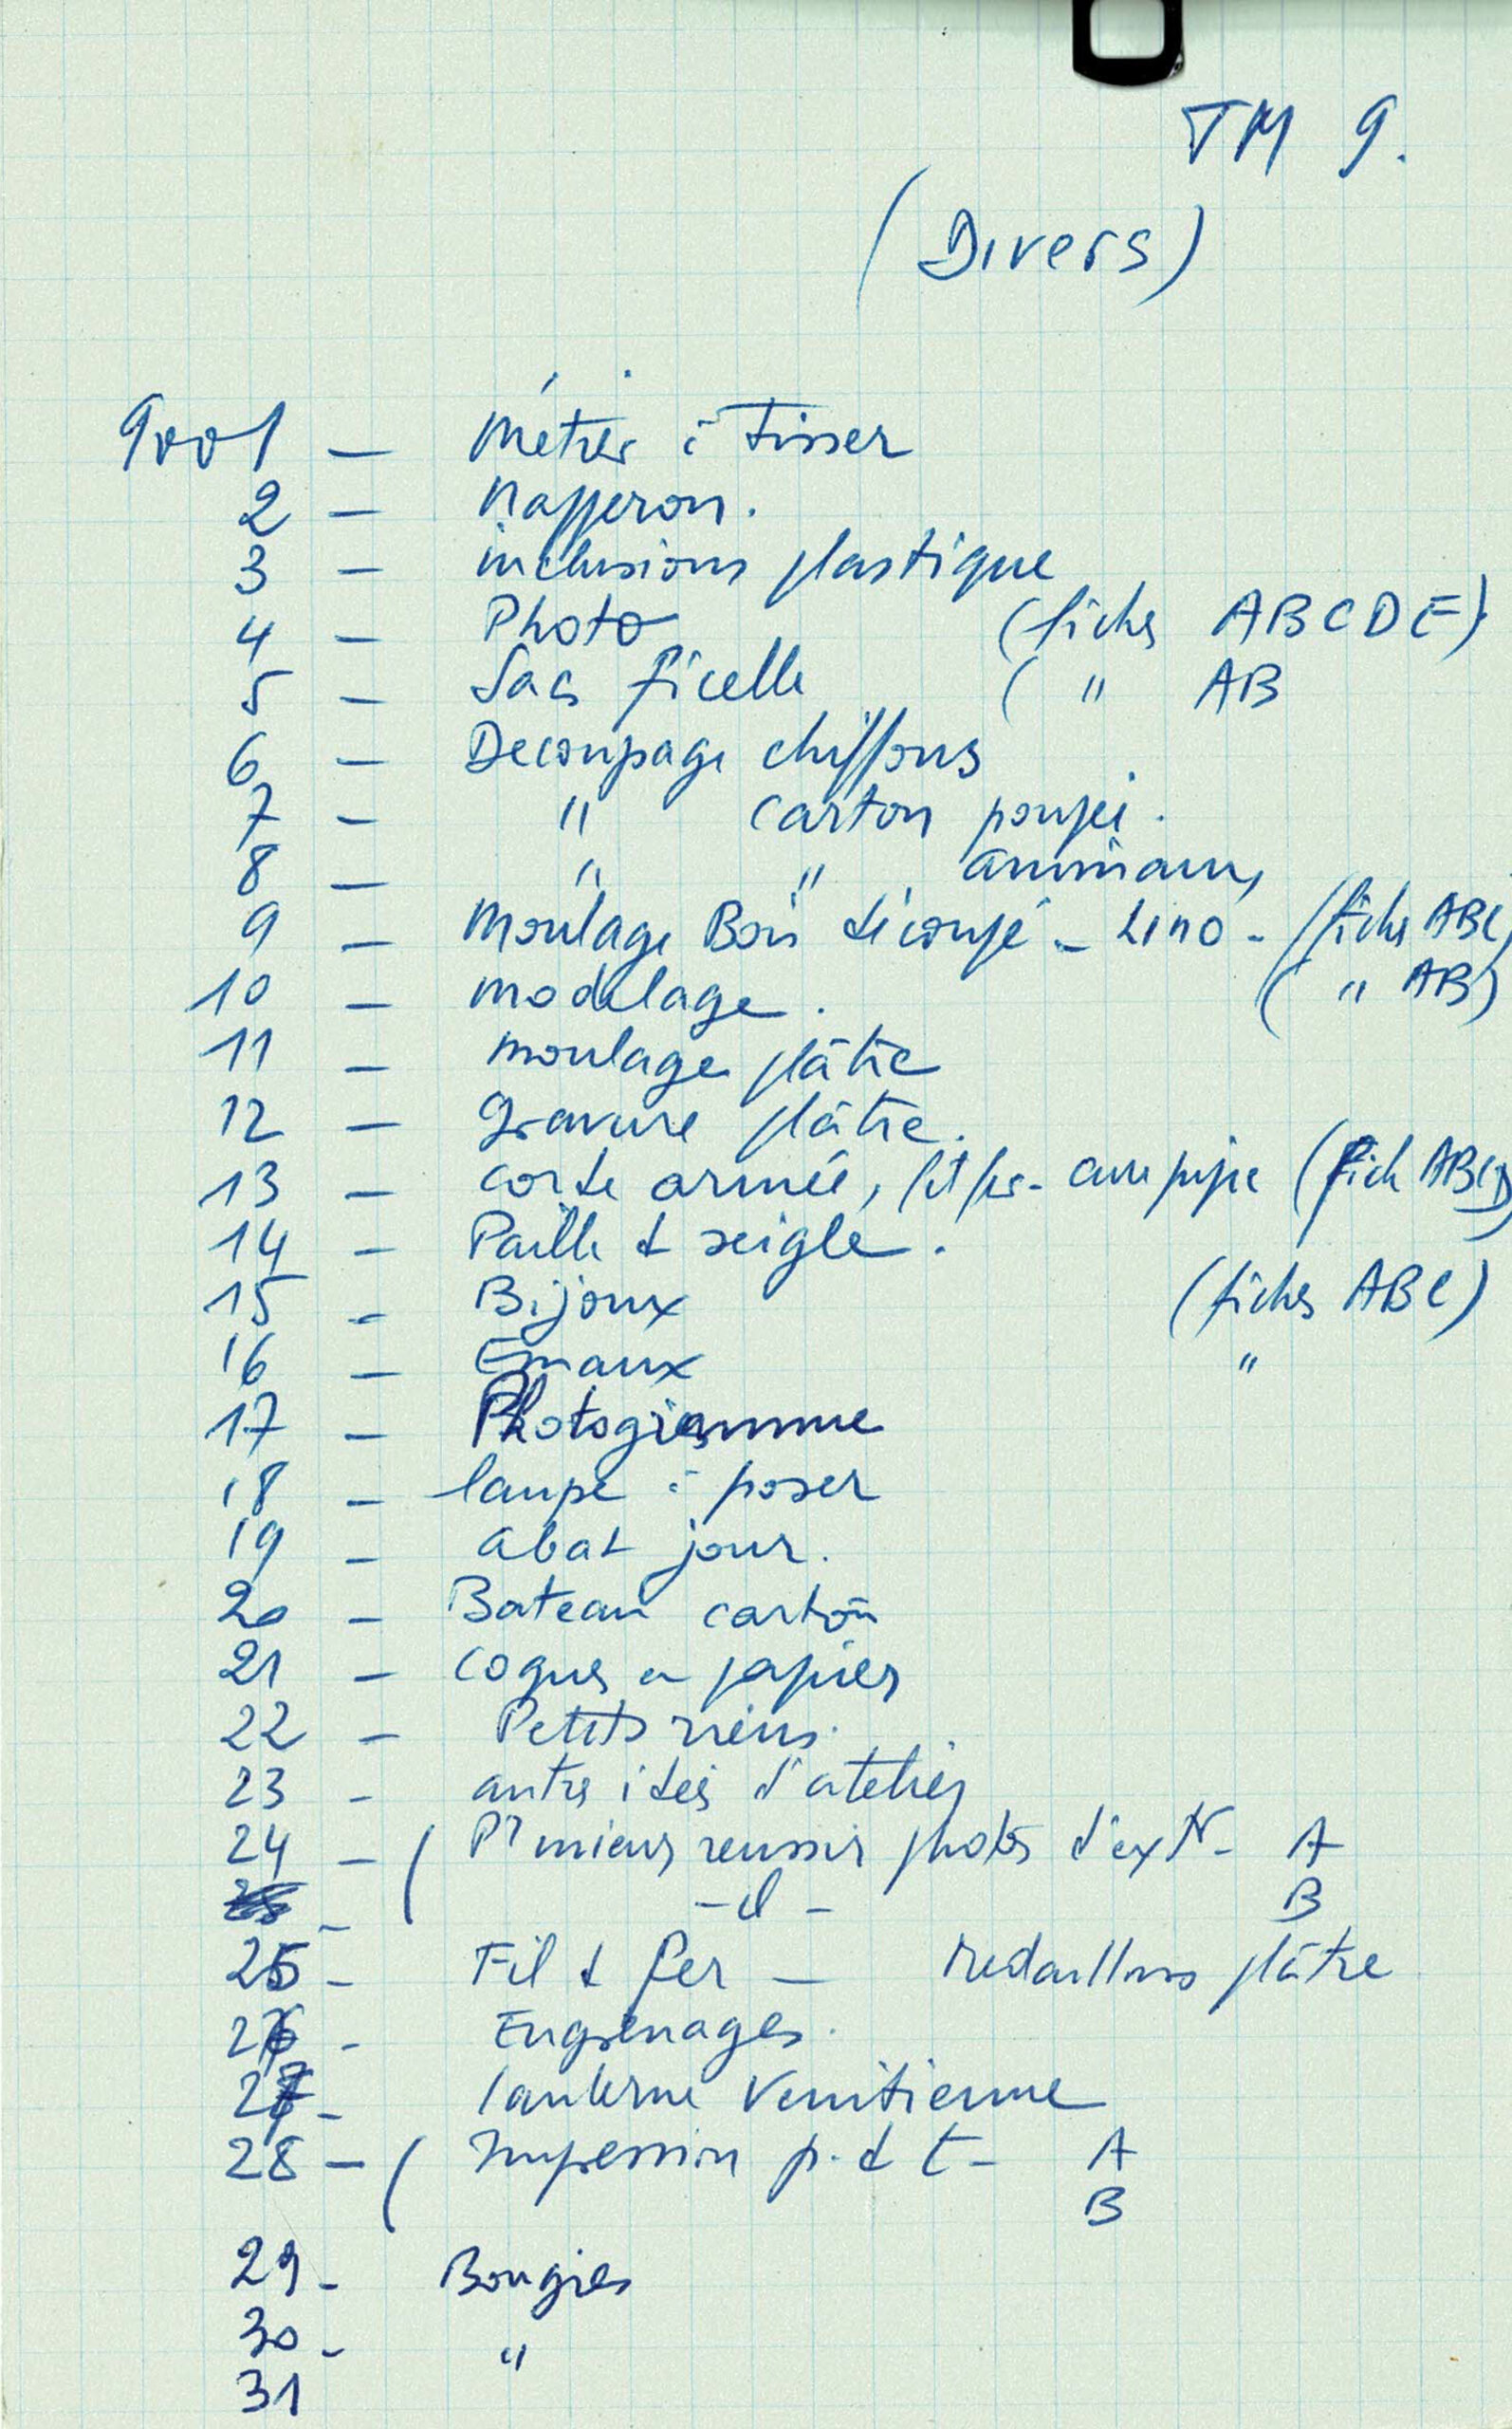 TM 9.
(Divers)
9001 — Métier à tisser
2 — Napperon.
3 — inclusions plastique
4 — Photo (fiches ABCDE)
5 — Sacs ficelle ( " AB
6 — Decoupage chiffons
7 — " carton poupée.
8 — " " animaux
9 — Moulage Bois découpé - Lino - (fiches ABC)
10 — modelage. ( " AB)
11 — moulage plâtre
12 — gravure plâtre.
13 — corde armée, cure pipe (fich ABCD)
14 — Paille d seigle.
15 - Bijoux (fiches ABC)
16 — Emaux "
17 — Photogramme
18 — lampe à poser
19 — abat jour.
20 — Bateau carton
21 — coques en papier
22 — Petits riens.
23 - autres idées d'atelier
24 — ( Pr mieux reussir photos d'extr - A
- ( - d - B
25 - Fil d fer — Medaillons plâtre
26 - Engrenages.
27 - lanterne Venitienne
28 — ( Impression p. d t - A
B
29 - Bougies
30 - "
31